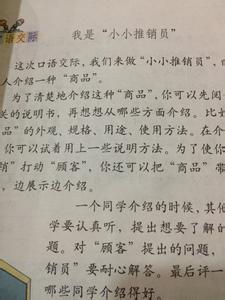 语交际
我是“小小推销员”
这次口语交际，我们来做“小小推销员”，
人介绍一种“商品”。
为了清楚地介绍这种“商品”，你可以先阅
关的说明书，再想想从哪些方面介绍。比
品”的外观、规格、用途、使用方法。在介
你可以试着用上一些说明方法。为了使你
销”打动“顾客”，你还可以把“商品”带
，边展示边介绍。
一个同学介绍的时候，其他
学要认真听，提出想要了解的
题。对“顾客”提出的问题，
销员”要耐心解答。最后评一
哪些同学介绍得好。